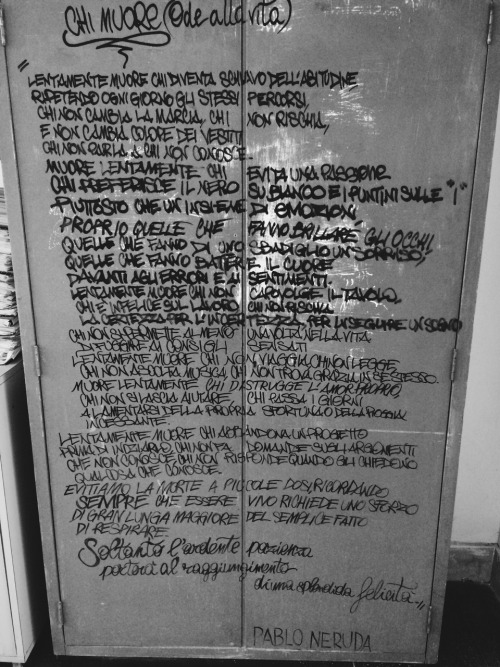 CHI MUORE (Ode alla vita)
"LENTAMENTE MUORE CHI DIVENTA SCHIAVO DELL'ABITUDINE,
RIPETENDO OGNI GIORNO GLI STESSI PERCORSI,
CHI NON CAMBIA LA MARCIA, CHI NON RISCHIA,
E NON CAMBIA COLORE DEI VESTITI
CHI NON PARLA A CHI NON CONOSCE.
MUORE LENTAMENTE CHI EVITA UNA PASSIONE
CHI PREFERISCE IL NERO SU BIANCO E I PUNTINI SULLE "i"
PIUTTOSTO CHE UN INSIEME DI EMOZIONI
PROPRIO QUELLE CHE FANNO BRILLARE GLI OCCHI
QUELLE CHE FANNO DI UNO SBADIGLIO UN SORRISO,
QUELLE CHE FANNO BATTERE IL CUORE
DAVANTI AGLI ERRORI E AI SENTIMENTI.
LENTAMENTE MUORE CHI NON CAPOVOLGE IL TAVOLO,
CHI È INFELICE SUL LAVORO, CHI NON RISCHIA
LA CERTEZZA PER L'INCERTEZZA, PER INSEGUIRE UN SOGNO
CHI NON SI PERMETTE ALMENO UNA VOLTA NELLA VITA
DI FUGGIRE AI CONSIGLI SENSATI
LENTAMENTE MUORE CHI NON VIAGGIA, CHI NON LEGGE
CHI NON ASCOLTA MUSICA, CHI NON TROVA GRAZIA IN SE STESSO.
MUORE LENTAMENTE CHI DISTRUGGE L'AMOR PROPRIO,
CHI NON SI LASCIA AIUTARE CHI PASSA I GIORNI
A LAMENTARSI DELLA PROPRIA SFORTUNA O DELLA PIOGGIA
INCESSANTE.
LENTAMENTE MUORE CHI ABBANDONA UN PROGETTO
PRIMA DI INIZIARLO, CHI NON FA DOMANDE SUGLI ARGOMENTI
CHE NON CONOSCE, CHI NON RISPONDE QUANDO GLI CHIEDONO
QUALCOSA CHE CONOSCE.
EVITIAMO LA MORTE A PICCOLE DOSI, RICORDANDO
SEMPRE CHE ESSERE VIVO RICHIEDE UNO SFORZO
DI GRAN LUNGA MAGGIORE DEL SEMPLICE FATTO
DI RESPIRARE.
Soltanto l'ardente pazienza
porterà al raggiungimento
di una splendida felicità."
PABLO NERUDA